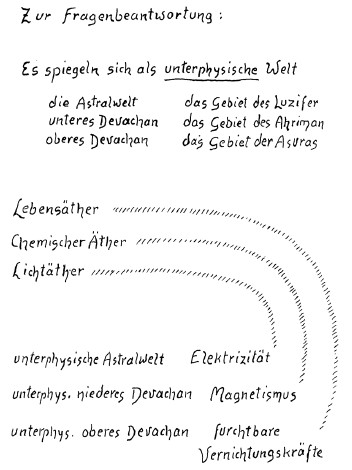 Zur Fragenbeantwortung:
Es spiegeln sich als unterphysische Welt
die Astralwelt das Gebiet des Luzifer
unteres Devachan das Gebiet des Ahriman
oberes Devachan das Gebiet der Asuras
Lebensäther
Chemischer Äther
Lichtäther
unterphysische Astralwelt Elektrizität
unterphys. niederes Devachan Magnetismus
unterphys. oberes Devachan furchtbare
Vernichtungskräfte